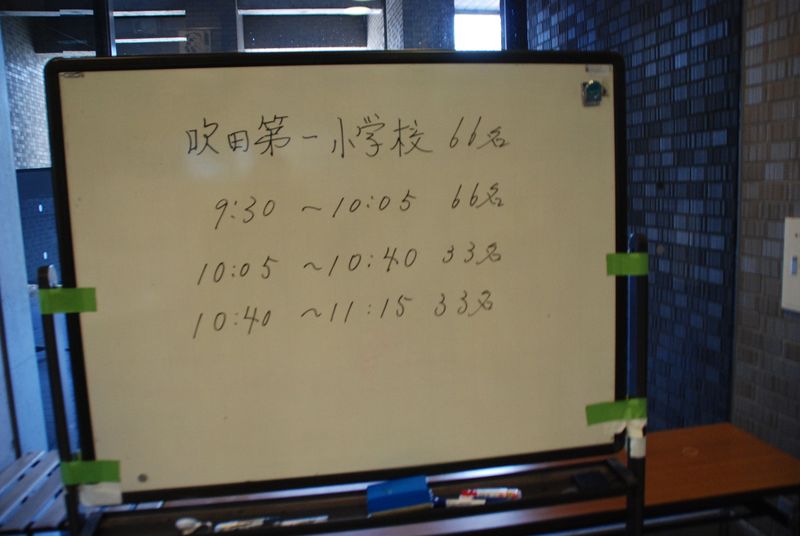 吹田第一小学校 66名
9:30 ～10:05 66名
10:05 ～10:40 33名
10:40 ～11:15 33名